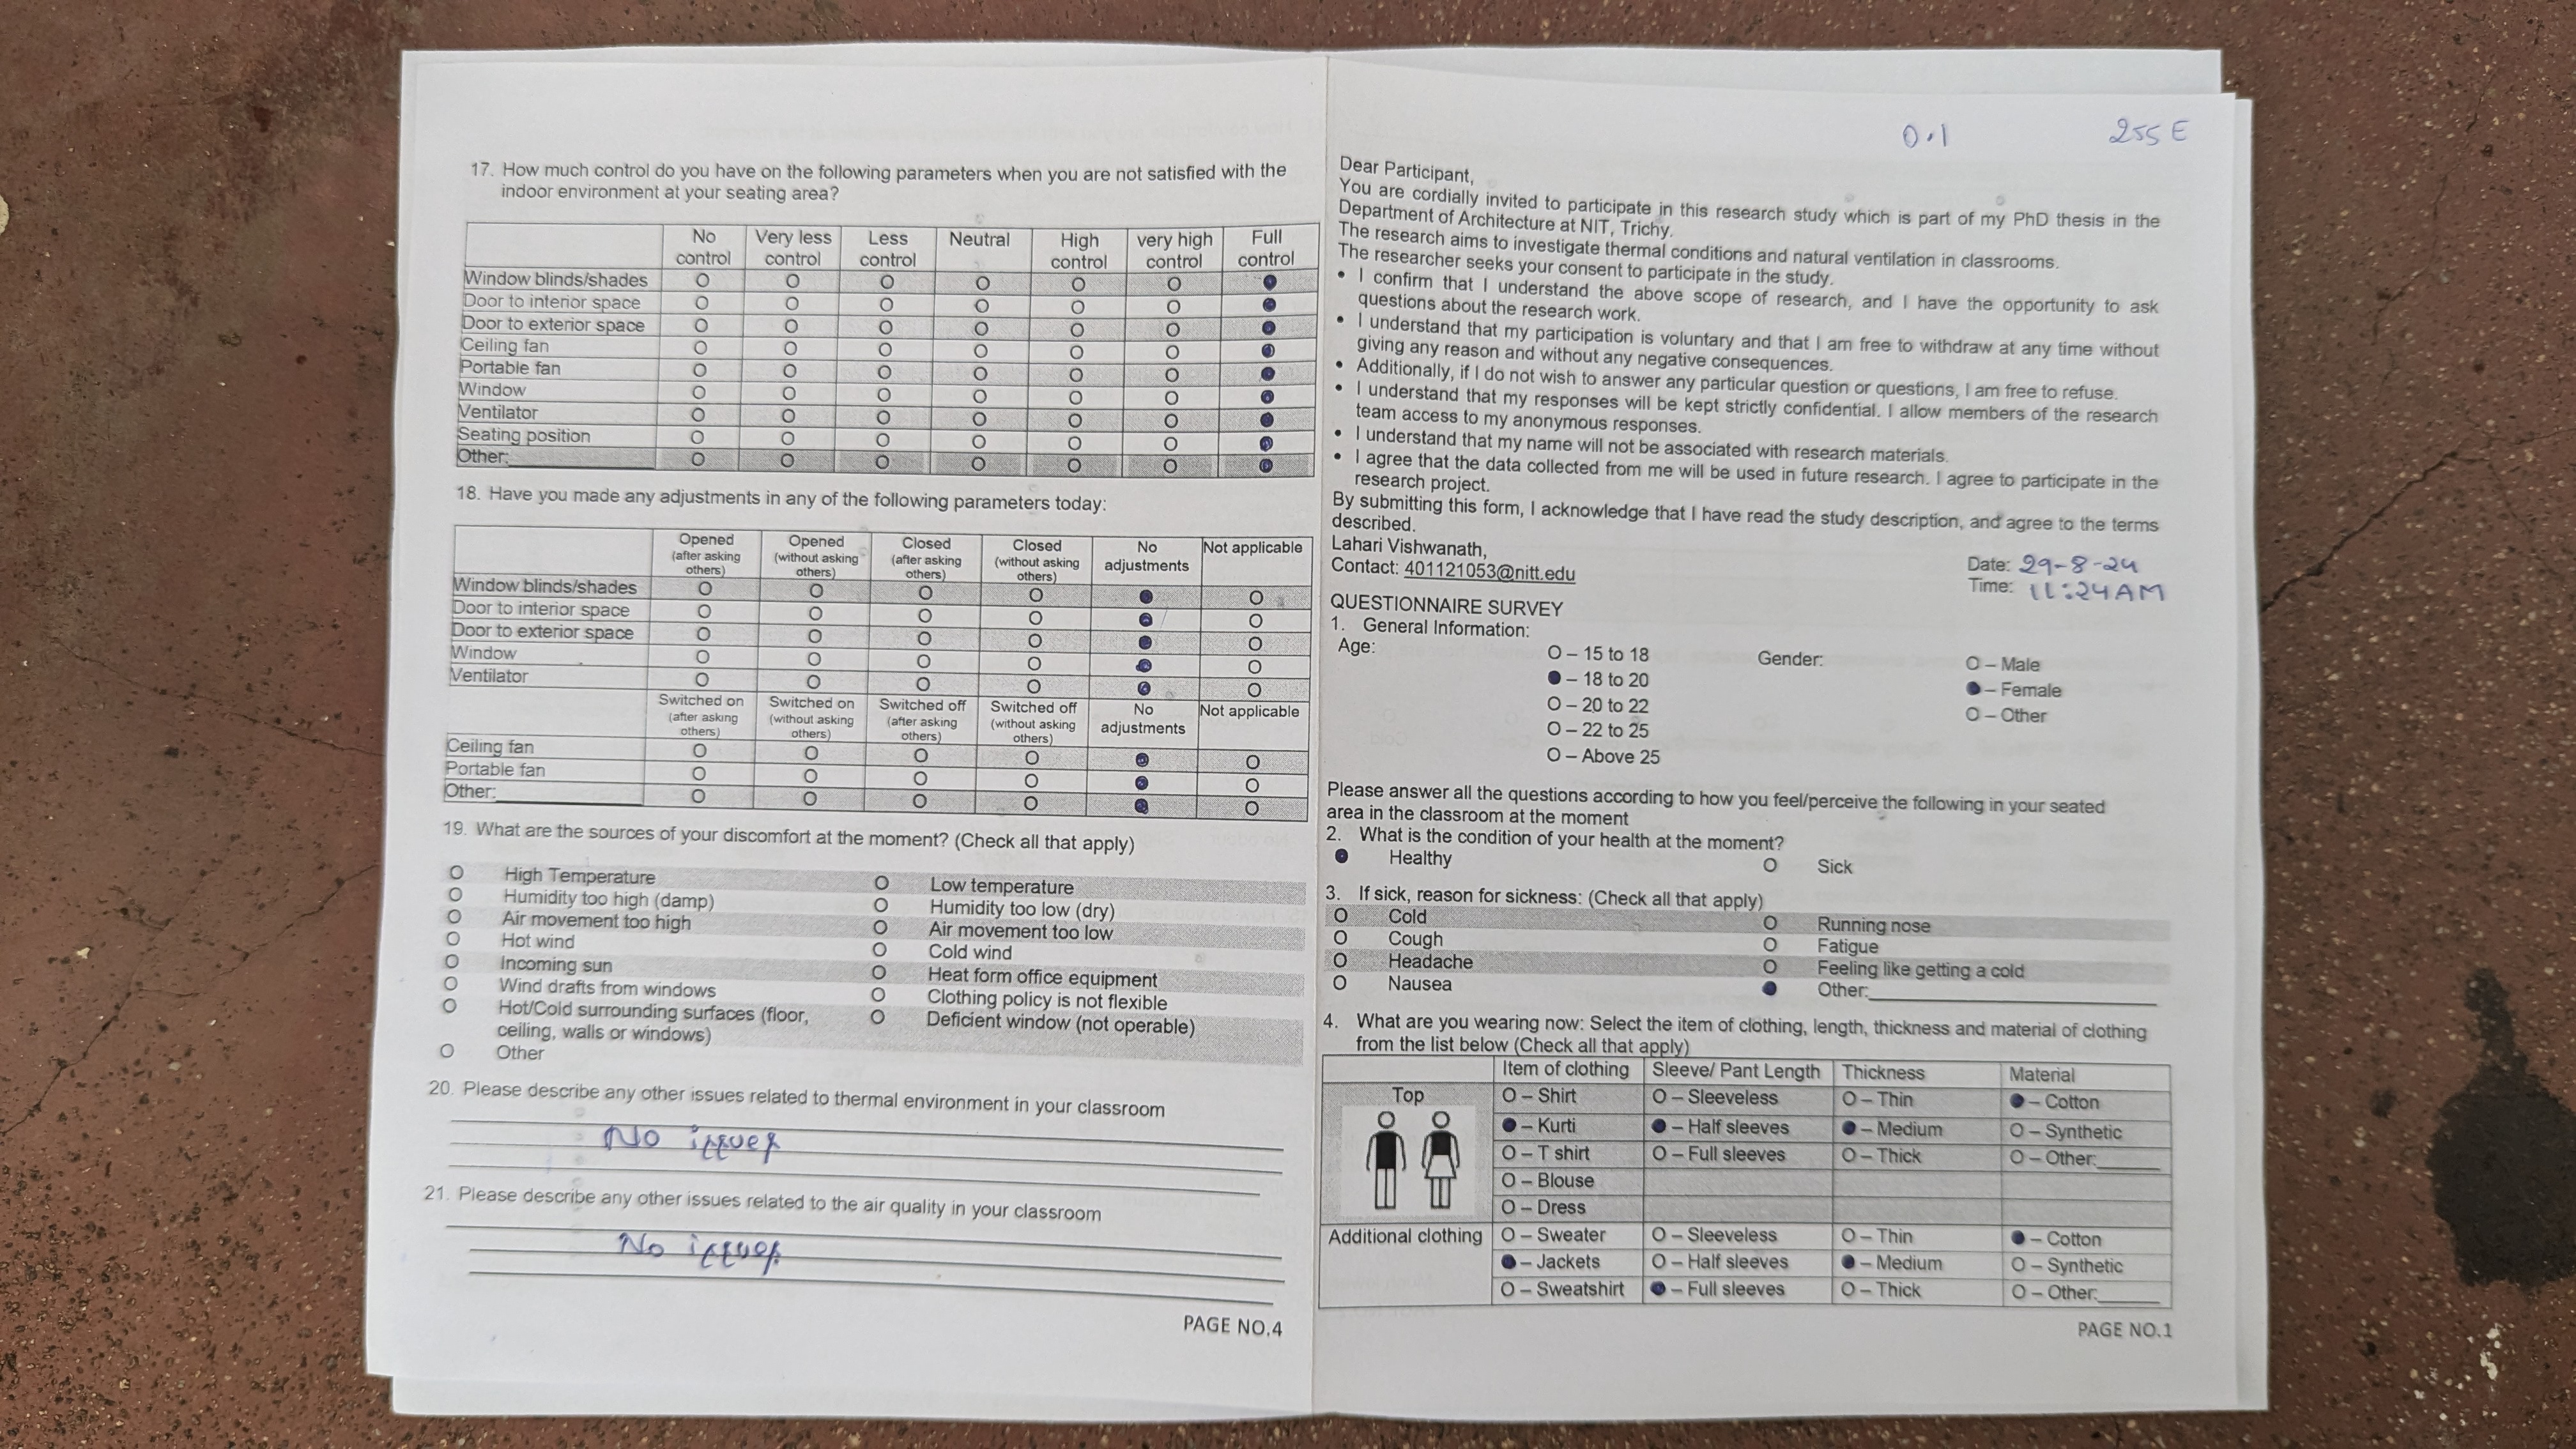 17. How much control do you have on the following parameters when you are not satisfied with the
indoor environment at your seating area?
No control Very less control Less control Neutral High control very high control Full control
Window blinds/shades O O O O O O ●
Door to interior space O O O O O O ●
Door to exterior space O O O O O O ●
Ceiling fan O O O O O O ●
Portable fan O O O O O O ●
Window O O O O O O ●
Ventilator O O O O O O ●
Seating position O O O O O O ●
Other:________ O O O O O O ●
18. Have you made any adjustments in any of the following parameters today:
Opened (after asking others) Opened (without asking others) Closed (after asking others) Closed (without asking others) No adjustments Not applicable
Window blinds/shades O O O O ● O
Door to interior space O O O O ● O
Door to exterior space O O O O ● O
Window O O O O ● O
Ventilator O O O O ● O
Switched on (after asking others) Switched on (without asking others) Switched off (after asking others) Switched off (without asking others) No adjustments Not applicable
Ceiling fan O O O O ● O
Portable fan O O O O ● O
Other:________ O O O O ● O
19. What are the sources of your discomfort at the moment? (Check all that apply)
O High Temperature O Low temperature
O Humidity too high (damp) O Humidity too low (dry)
O Air movement too high O Air movement too low
O Hot wind O Cold wind
O Incoming sun O Heat form office equipment
O Wind drafts from windows O Clothing policy is not flexible
O Hot/Cold surrounding surfaces (floor, O Deficient window (not operable)
ceiling, walls or windows)
O Other
20. Please describe any other issues related to thermal environment in your classroom
No issues
21. Please describe any other issues related to the air quality in your classroom
No issues
PAGE NO.4
0.1 255 E
Dear Participant,
You are cordially invited to participate in this research study which is part of my PhD thesis in the
Department of Architecture at NIT, Trichy.
The research aims to investigate thermal conditions and natural ventilation in classrooms.
The researcher seeks your consent to participate in the study.
• I confirm that I understand the above scope of research, and I have the opportunity to ask
questions about the research work.
• I understand that my participation is voluntary and that I am free to withdraw at any time without
giving any reason and without any negative consequences.
• Additionally, if I do not wish to answer any particular question or questions, I am free to refuse.
• I understand that my responses will be kept strictly confidential. I allow members of the research
team access to my anonymous responses.
• I understand that my name will not be associated with research materials.
• I agree that the data collected from me will be used in future research. I agree to participate in the
research project.
By submitting this form, I acknowledge that I have read the study description, and agree to the terms
described.
Lahari Vishwanath,
Contact: 401121053@nitt.edu
Date: 29-8-24
Time: 11:24AM
QUESTIONNAIRE SURVEY
1. General Information:
Age: O – 15 to 18 Gender: O – Male
● – 18 to 20 ● – Female
O – 20 to 22 O – Other
O – 22 to 25
O – Above 25
Please answer all the questions according to how you feel/perceive the following in your seated
area in the classroom at the moment
2. What is the condition of your health at the moment?
● Healthy O Sick
3. If sick, reason for sickness: (Check all that apply)
O Cold O Running nose
O Cough O Fatigue
O Headache O Feeling like getting a cold
O Nausea ● Other:________
4. What are you wearing now: Select the item of clothing, length, thickness and material of clothing
from the list below (Check all that apply)
Item of clothing Sleeve/ Pant Length Thickness Material
Top O – Shirt O – Sleeveless O – Thin ● – Cotton
● – Kurti ● – Half sleeves ● – Medium O – Synthetic
O – T shirt O – Full sleeves O – Thick O – Other:______
O – Blouse
O – Dress
Additional clothing O – Sweater O – Sleeveless O – Thin ● – Cotton
● – Jackets O – Half sleeves ● – Medium O – Synthetic
O – Sweatshirt ● – Full sleeves O – Thick O – Other:______
PAGE NO.1